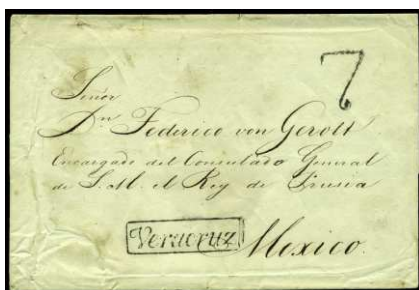 7
Señor
Dn. Federico von Gerolt
Encargado del Consulado General
de S. M. el Rey de Prusia
Veracruz Mexico.